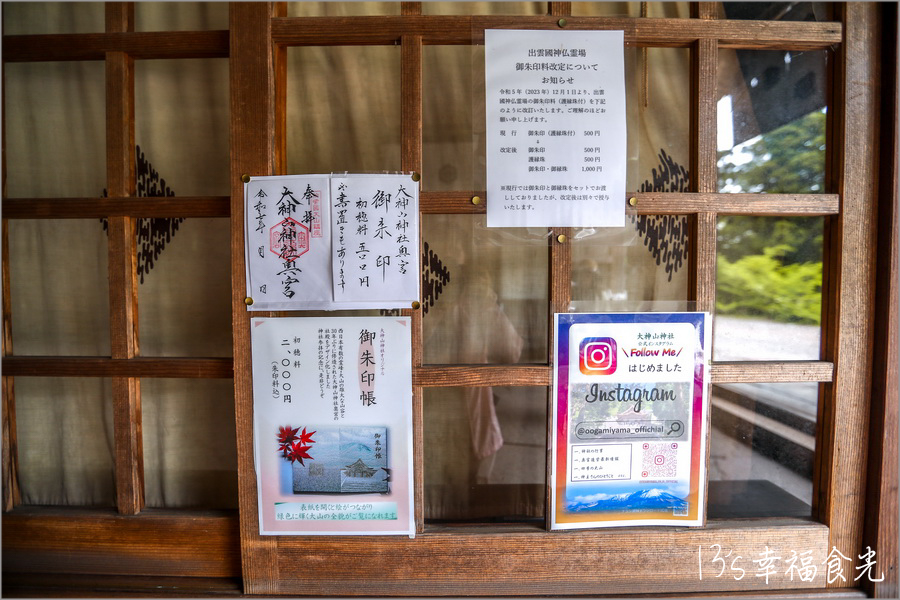 出雲國神仏霊場
御朱印料改定について
お知らせ
令和5年(2023年)12月1日より、出雲
國神仏霊場の御朱印料(護縁珠付)を下記
のように改訂いたします。ご理解のほどお
願い申し上げます。
現 行 御朱印(護縁珠付) 500円
↓
改定後 御朱印 500円
護縁珠 500円
御朱印・御縁珠 1,000円
※現行では御朱印と御縁珠をセットでお渡
ししておりましたが、改定後は別々で授与
いたします。
大神山神社奥宮
御朱印
初穂料 五〇〇円
書置きもあります
奉拝
大神山神社奥宮
令和 年 月 日
大神山神社オリジナル
御朱印帳
西日本有数の霊峰大山の雄大な山容と
社殿をデザイン化しました
初穂料
二、〇〇〇円
(朱印料込)
御朱印帳
表紙を開くと絵がつながり
緑色に輝く大山の全貌がご覧になれます
大神山神社
公式インスタグラム
\Follow Me/
はじめました
Instagram
@oogamiyama_offichial
13's幸福食光